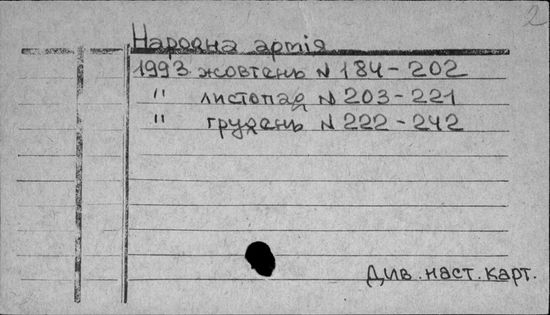 2
Народна армія
1993 жовтень N 184-202
" листопад N 203-221
" грудень N 222-242
Див. наст. карт.